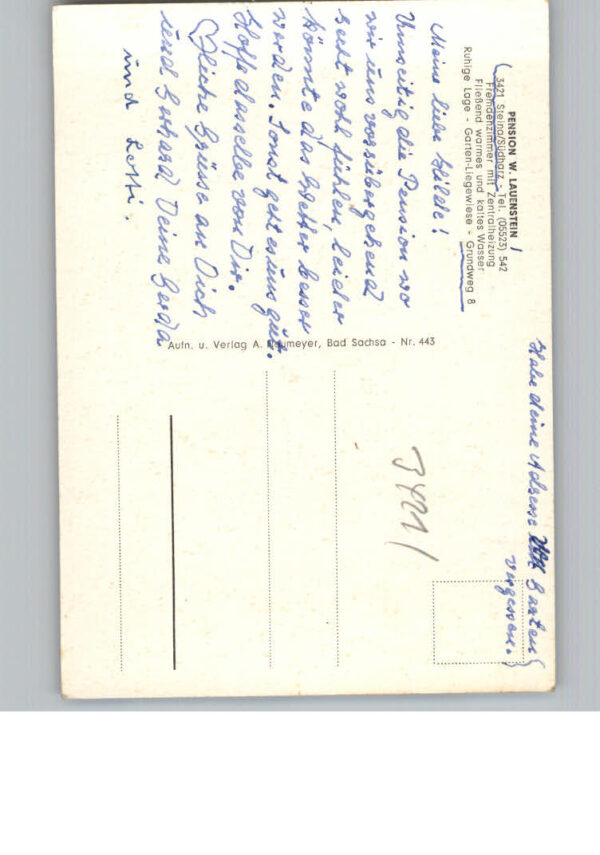 PENSION W. LAUENSTEIN
3421 Steina/Südharz - Tel. (05523) 542
Fremdenzimmer mit Zentralheizung
Fließend warmes und kaltes Wasser
Ruhige Lage - Garten-Liegewiese - Grundweg 8
Meine liebe Hilde!
Umseitig die Pension wo
wir uns vorübergehend
recht wohl fühlen, leider
könnte das Wetter besser
werden. Sonst geht es uns gut.
Hoffe dasselbe von Dir.
liche Grüsse an Dich
und Gerhard Deine Gerda
und
Aufn. u. Verlag A. Neumeyer, Bad Sachsa - Nr. 443
Habe deine Adresse
Garten
vergessen.
3421